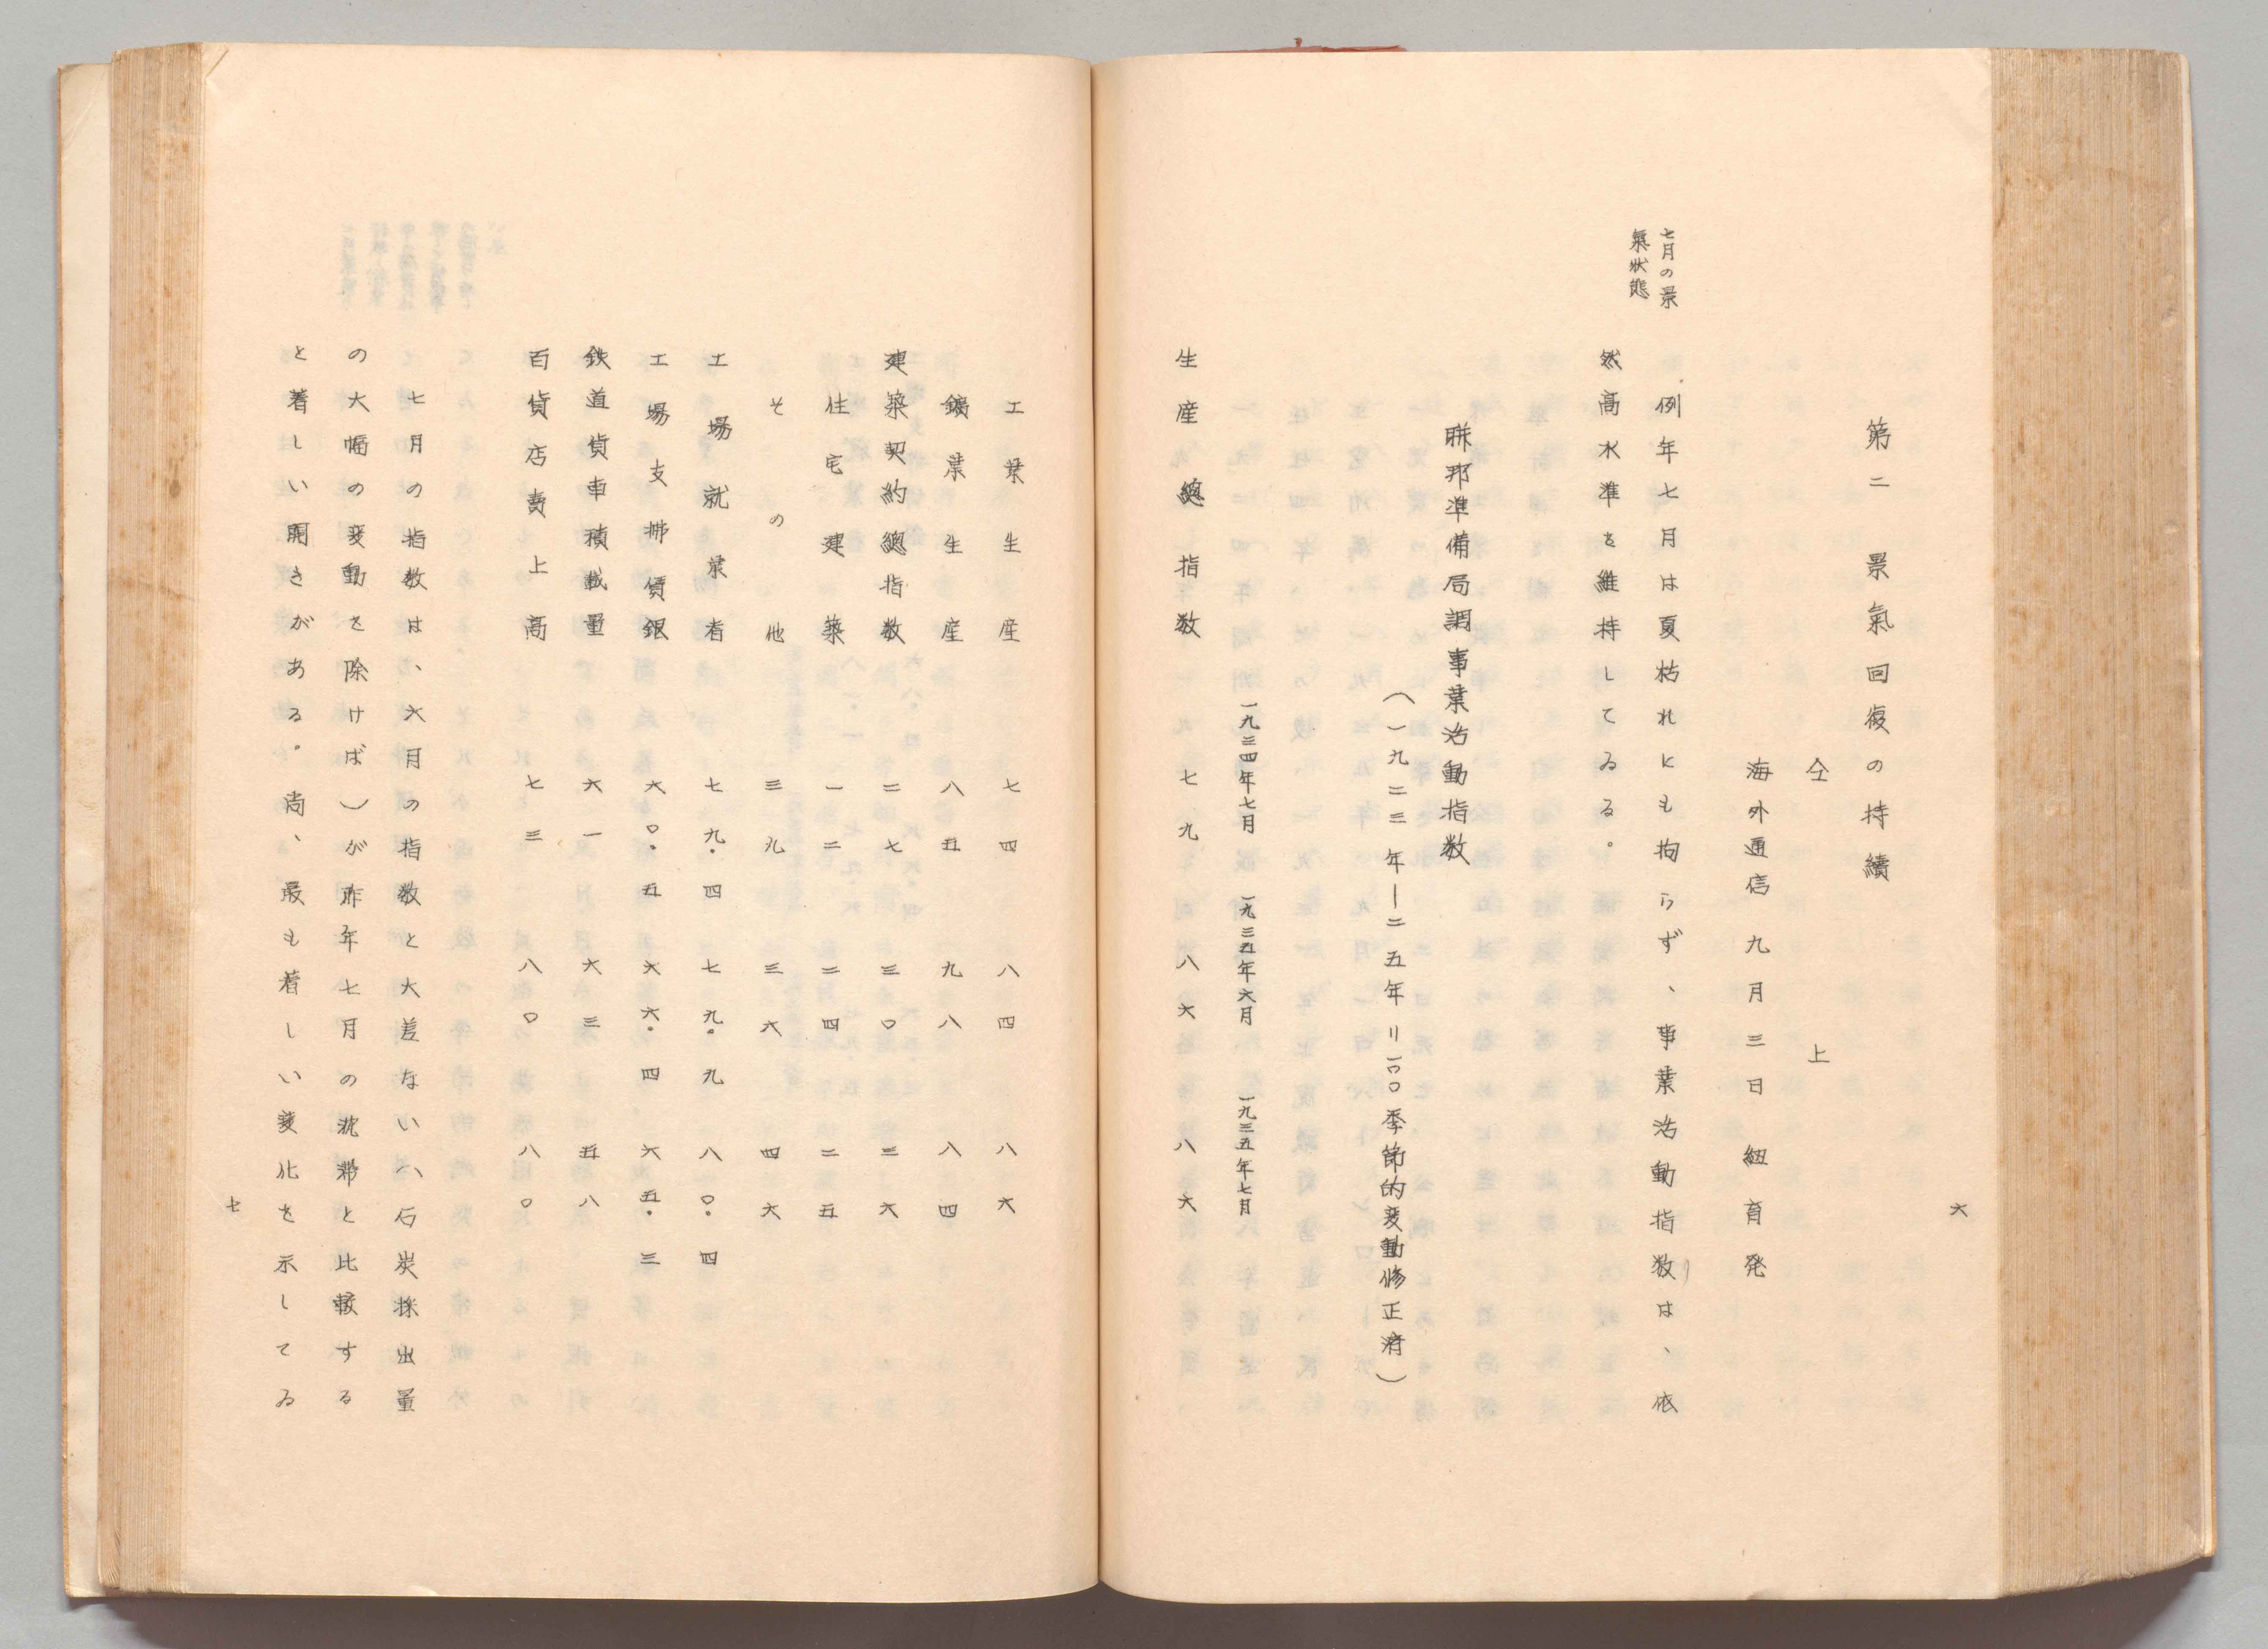 六
第二　景氣回復の持續
仝　上
海外通信　九月三日　紐育発
七月の景
氣狀態
例年七月は夏枯れにも拘らず、事業活動指数は、依
然高水準を維持してゐる。
聯邦準備局調事業活動指数
（一九二三年—二五年＝一〇〇季節的変動修正済）
一九三四年七月　一九三五年六月　一九三五年七月
生産總指数　七九　八六　八六
工業生産　七四　八四　八六
鑛業生産　八五　九八　八四
建築契約總指数　二七　三〇　三六
住宅建築　一二　二四　二五
その他　三九　三六　四六
工場就業者　七九・四　七九・九　八〇・四
工場支拂賃銀　六〇・五　六六・四　六五・三
鉄道貨車積載量　六一　六三　五八
百貨店賣上高　七三　八〇　八〇
七月の指数は、六月の指数と大差ない（石炭採出量
の大幅の変動を除けば）が昨年七月の沈滞と比較する
と着しい開きがある。尚、最も着しい変化を示してゐ
七